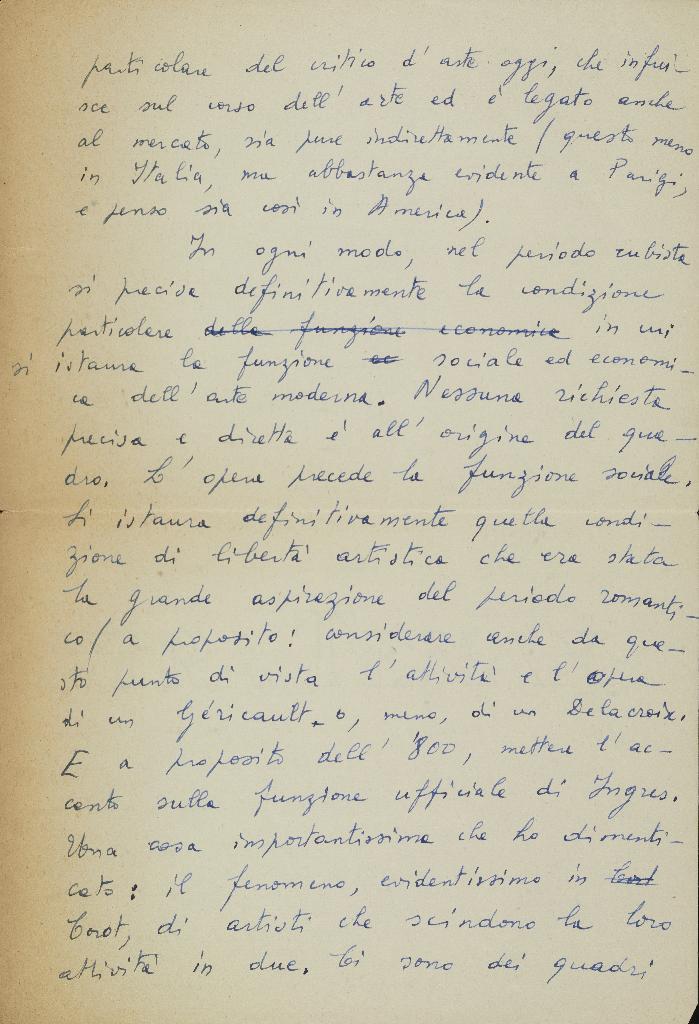 particolare del critico d'arte oggi, che influi-
sce sul corso dell'arte ed è legato anche
al mercato, sia pure indirettamente (questo meno
in Italia, ma abbastanza evidente a Parigi,
e penso sia così in America).
In ogni modo, nel periodo cubista
si precisa definitivamente la condizione
particolare della funzione economica in cui
si istaura la funzione ec sociale ed economi-
ca dell'arte moderna. Nessuna richiesta
precisa e diretta è all'origine del qua-
dro. L'opera precede la funzione sociale.
Si istaura definitivamente quella condi-
zione di libertà artistica che era stata
la grande aspirazione del periodo romanti-
co (a proposito: considerare anche da que-
sto punto di vista l'attività e l'opera
di un Géricault, o, meno, di un Delacroix.
E a proposito dell'800, mettere l'ac-
cento sulla funzione ufficiale di Ingres.
Una cosa importantissima che ho dimenti-
cato: il fenomeno, evidentissimo in
Corot, di artisti che scindono la loro
attività in due. Ci sono dei quadri